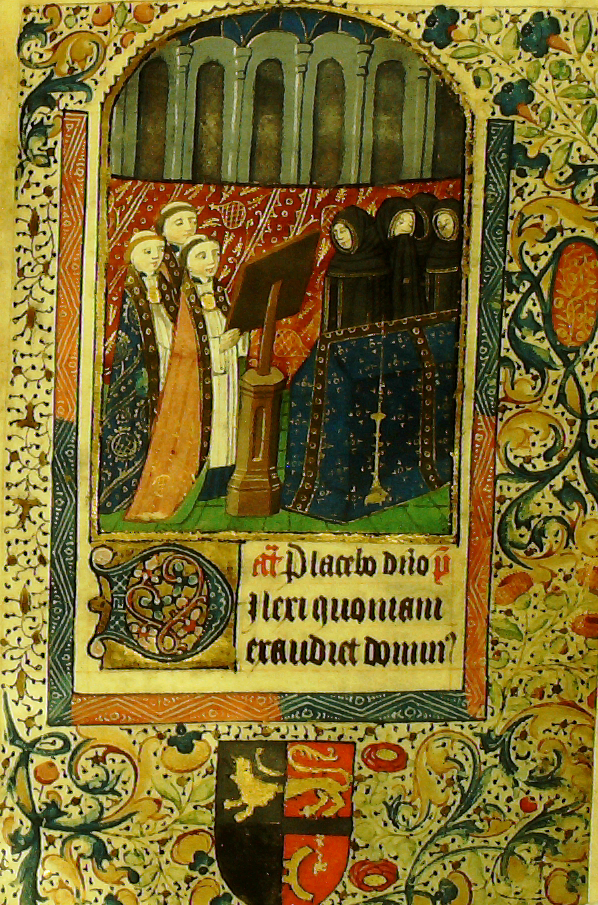 añ Placebo dño p̄
Dilexi quoniam
exaudiet dominꝰ